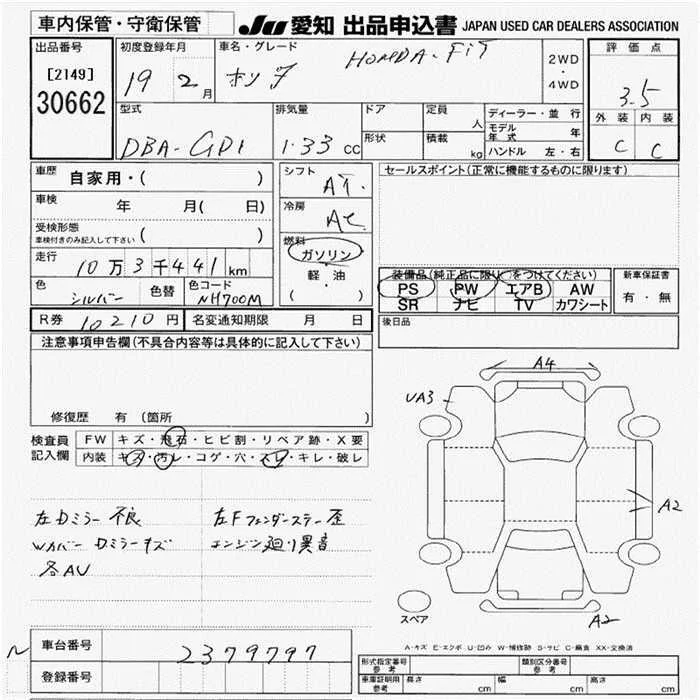 車内保管・守衛保管
JU 愛知 出品申込書 JAPAN USED CAR DEALERS ASSOCIATION
出品番号
[2149]
30662
初度登録年月
19 2月
車名・グレード
ホンダ HOMDA・FiT
2WD
・
4WD
評価点
3.5
外装 内装
C C
型式
DBA-GD1
排気量
1.33 cc
ドア
形状
定員 人
積載 kg
ディーラー・並行
モデル年式 年
ハンドル 左・右
車歴
自家用・( )
車検 年 月( 日)
受検形態
車検付きのみ記入して下さい ( )
走行
10万3千441km
色
シルバー
色替
色コード
NH700M
シフト
AT.
冷房
AC
燃料
ガソリン
軽・油
( )
セールスポイント(正常に機能するものに限ります)
装備品(純正品に限り○をつけてください)
PS PW エアB AW
SR ナビ TV カワシート
新車保証書
有・無
R券 10210円 名変通知期限 月 日
後日品
注意事項申告欄(不具合内容等は具体的に記入して下さい)
修復歴 有 (箇所 )
検査員
記入欄
FW キズ・飛石・ヒビ割・リペア跡・X要
内装 キズ・汚レ・コゲ・穴・スレ・キレ・破レ
左Dミラー不良
Wカバー Dミラーキズ
各AU
左Fフェンダーステー歪
エンジン廻り異音
A4
UA3
A2
A2
スペア
A-キズ E-エクボ U-凹み W-補修跡 S-サビ C-腐食 XX-交換済
N
車台番号
2379797
登録番号
形式指定番号 参考
類別区分番号 参考
車庫証明用 参考
長さ cm 幅 cm 高さ cm